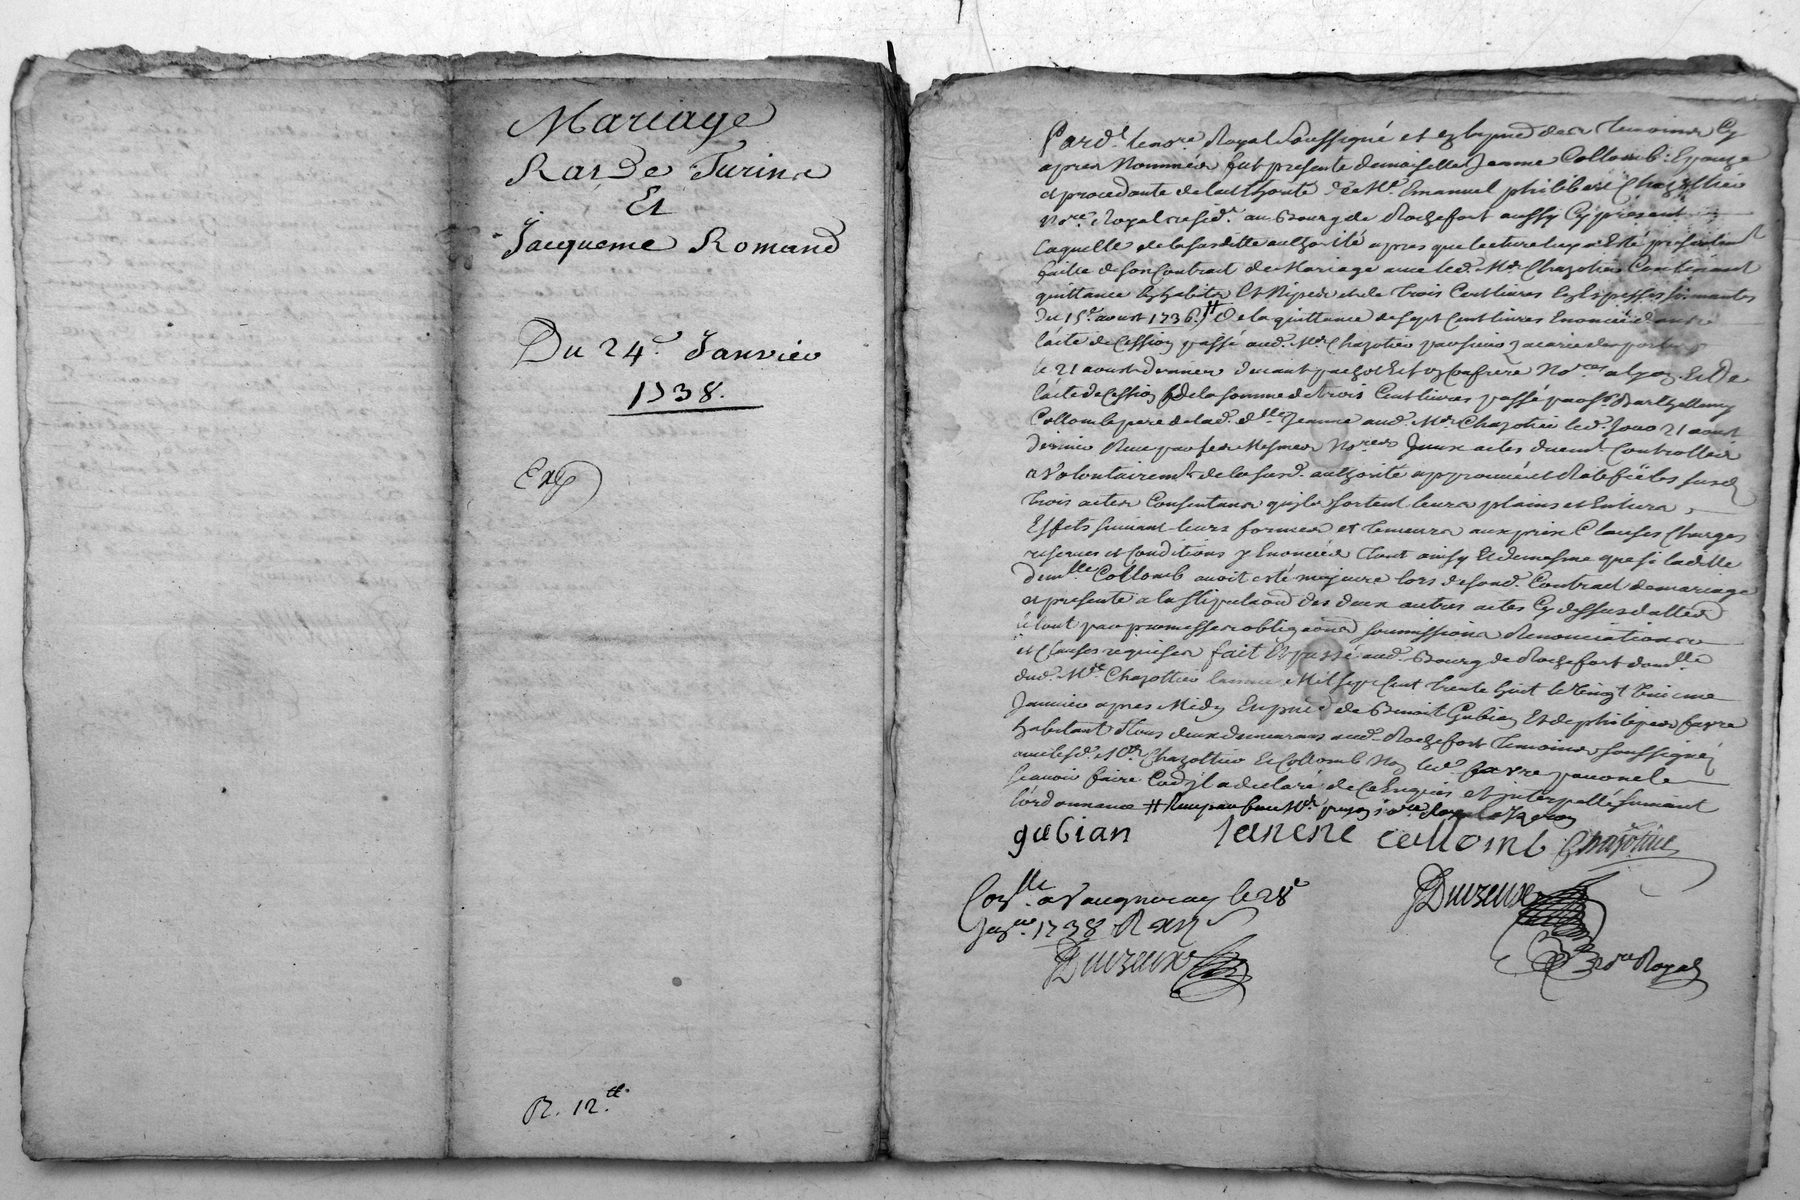 Mariage
Et
Jacqueme Romand
Du 24e. Janvier
1738.
Exp
R. 12.tt
Pard.t le no.re Royal soussigné et en presence des temoins cy
apres nommés fut presente demoiselle Jeanne Collomb Epouze
et procedante de lauthorité de Me. Emanuel philibert Chazottier
No.re Royal resid.t au Bourg de Rochefort aussy cy present
Laquelle de la susditte authorité apres que lecture luy a esté presentement
faitte de son Contrat de Mariage avec led. Me. Chazottier Contenant
quittance et de trois Cent livres
du 15e. aoust 1736. # & de la quittance de sept Cent livres Enoncée dans
lacte de Cession passé aud. Me. Chazottier par sieur
le 21 aoust dernier devant et son Confrere No.res a Lyon Et de
lacte de Cession de la somme de trois Cent livres passé par sr. Barthellemy
Collomb pere de lad. d.lle Jeanne aud. Me. Chazottier led. Jour 21 aoust
dernier Receu par les Mesmes No.res Iceux actes duem.t Controllés
a Volontairem.t de la susd. authorité approuvé et Ratiffié les susd.
trois actes Consentans quils sortent leurs plains et Entiers
Effets suivant leurs formes et teneurs aux prix Clauses Charges
reserves et Conditions y Enoncées tout ainsy Et de mesme que si laditte
dem.lle Collomb avoit esté majeure lors de sond. Contrat de mariage
et presente a la stipulaon des deux autres actes Cy dessus dattés
le tout par promesses obligaons soumissions Renonciations
et Clauses requises fait Et passé aud. Bourg de Rochefort dom.lle
dud. Me. Chazottier lannée Mil sept Cent trente huit le vingt
Janvier apres Midy En pn.ce de Benoit Gubian Et de philipes favre
habitant tous deux demeurans aud. Rochefort temoins soussignés
avec lesd. Me. Chazottier et Collomb Non led. favre pour ne le
scavoir faire Cõe il a declaré de ce Enquis et interpellé suivant
lordonnance # Receu par Me.
gubian Jeanne collomb Chazottier
Con.llé a Vaugneray le 28e
Janv. 1738 R
Duvzeux
Duvzeux
no.re Royal